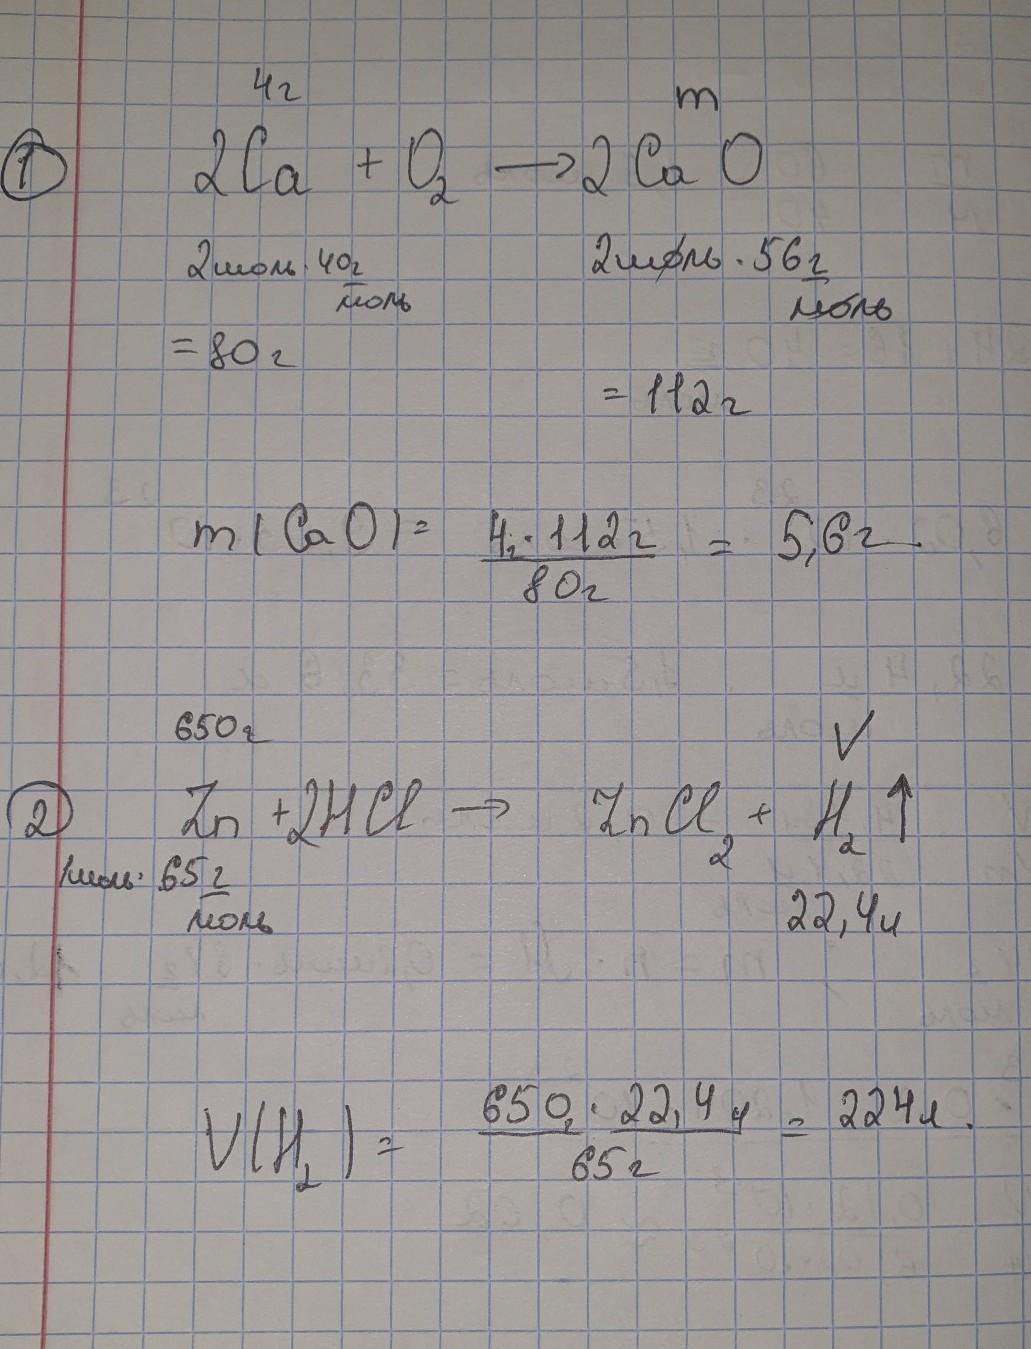 4г m
① 2Ca + O₂ → 2CaO
2моль · 40г/моль 2моль · 56г/моль
= 80г
= 112г
m(CaO) = 4г · 112г / 80г = 5,6г
650г V
② Zn + 2HCl → ZnCl₂ + H₂↑
1моль · 65г/моль 22,4л
V(H₂) = 650г · 22,4л / 65г = 224л.